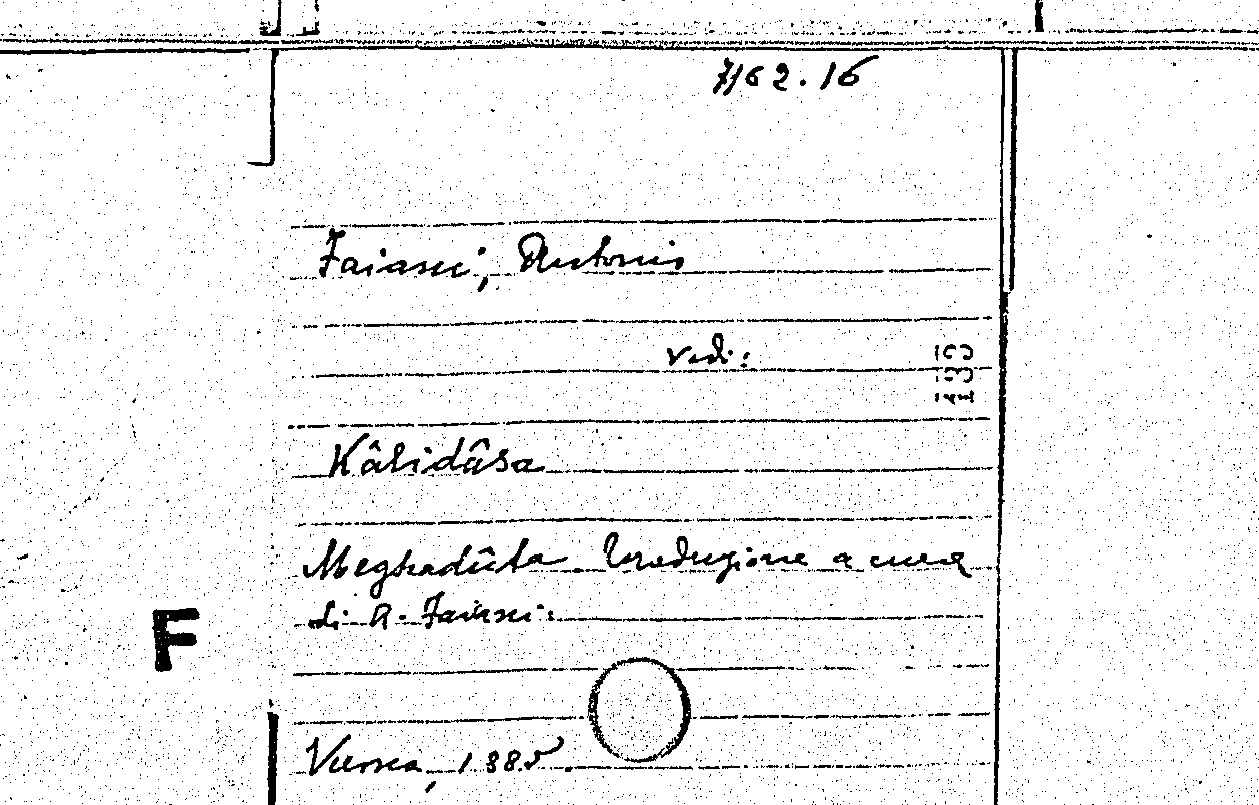 7162.16
Faiasci, Antonio
vedi:
133
Kâlidâsa
Meghadûta. Traduzione a cura
di A. Faiasci.
F
1885.